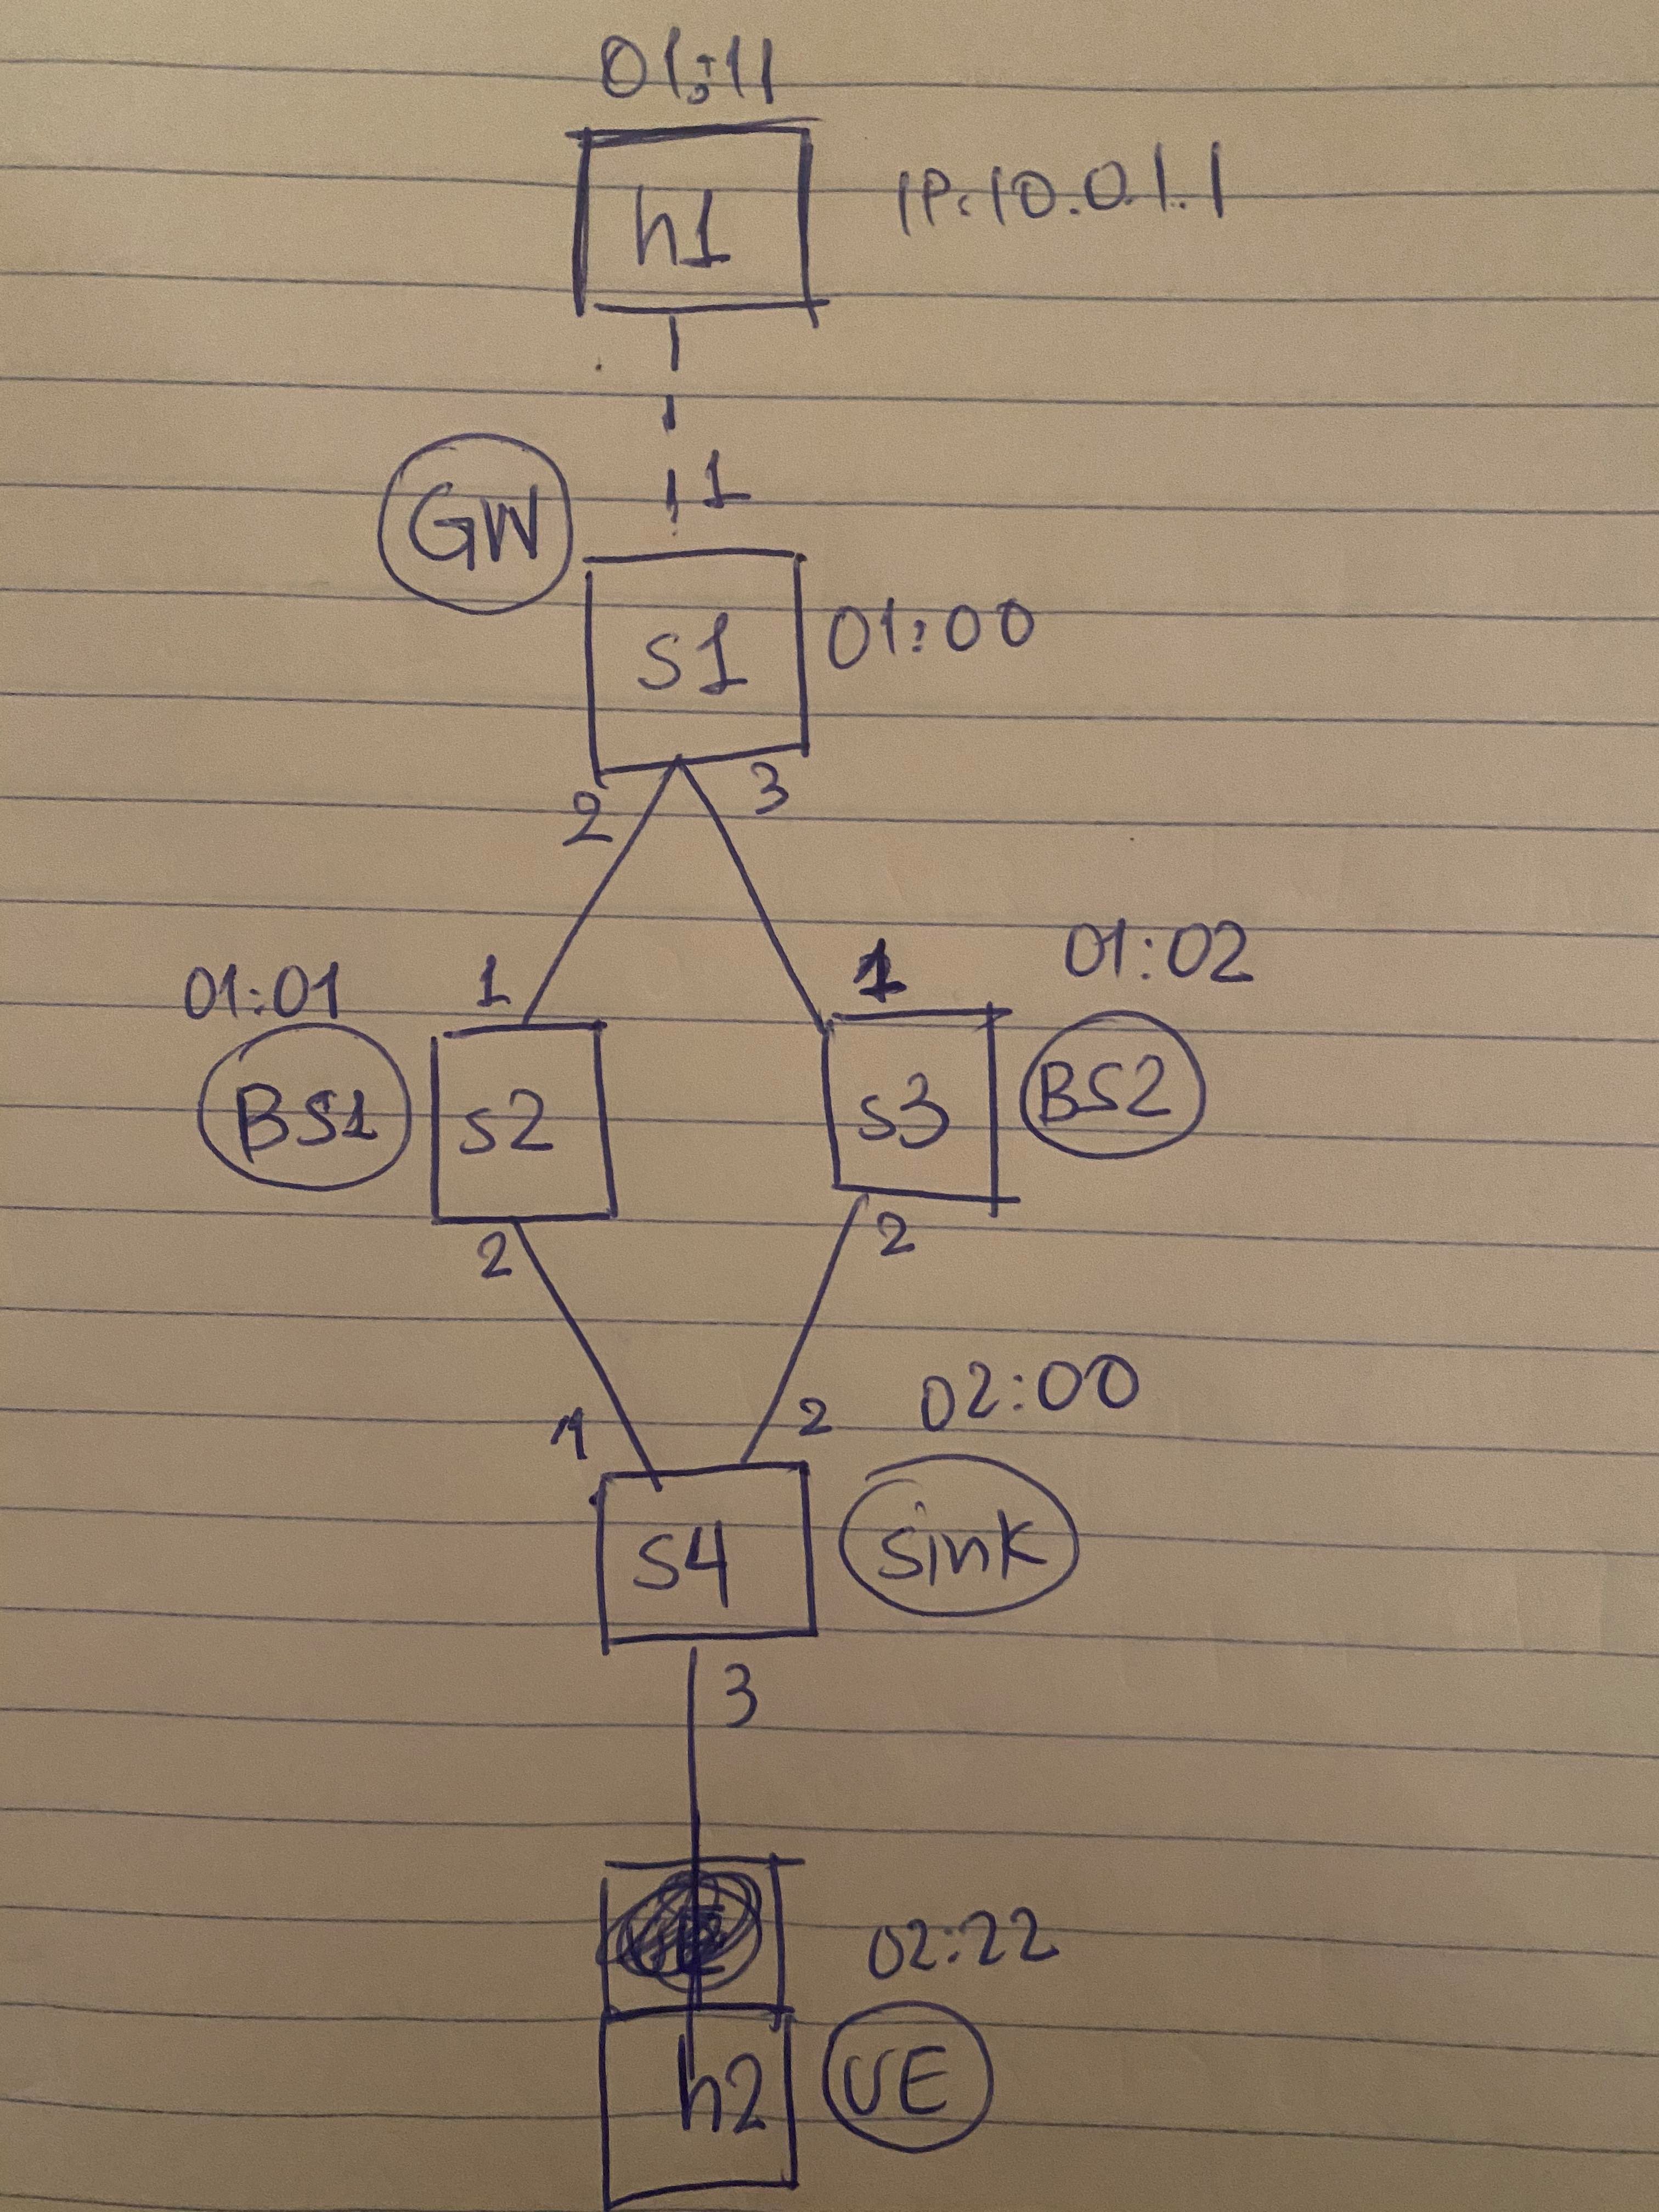 01:11
h1
IP:10.0.1.1
1
GW
s1
01:00
2
3
01:01
1
1
01:02
BS1
s2
s3
BS2
2
2
1
2
02:00
s4
sink
3
02:22
h2
UE